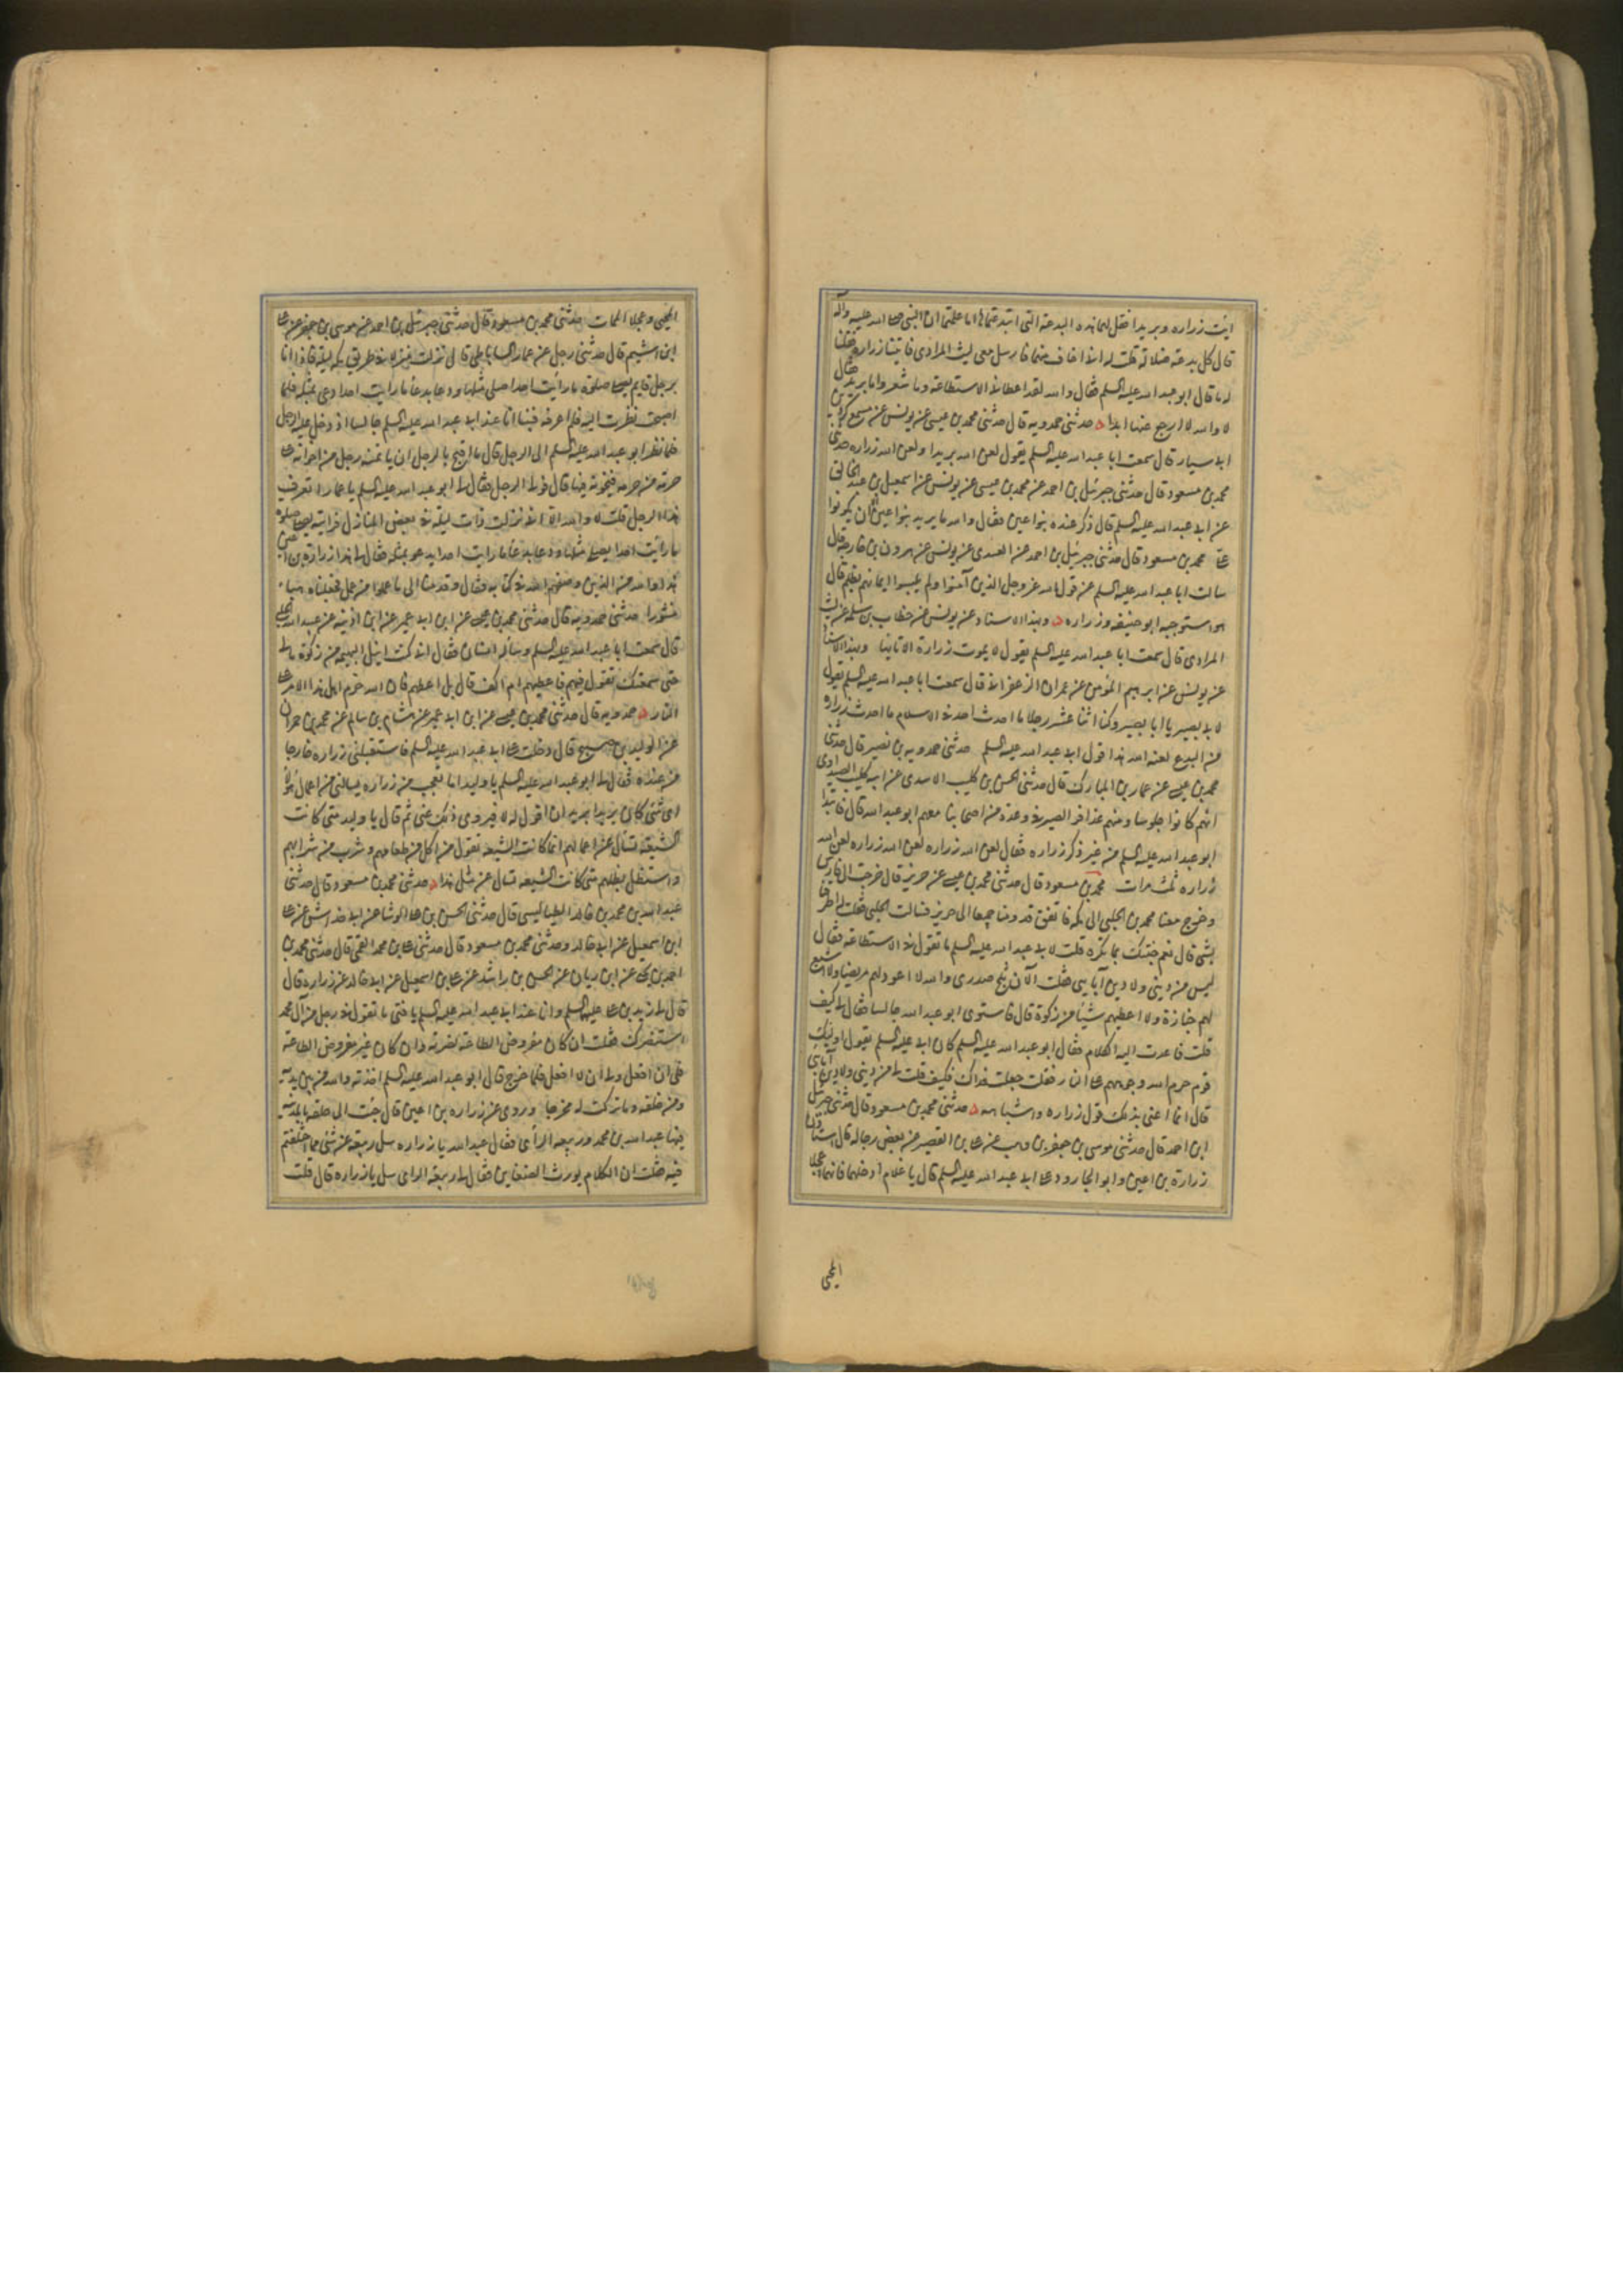 ايت زراره وبريدا فقل لهما ما هذه البدعة التى ابتدعتماها اما علمتما ان النبى صلى الله عليه وآله
قال كل بدعة ضلالة قلت له انى اخاف منهما فارسل معى ليث المرادى فاتينا زراره فقلنا
له ما قال ابو عبد الله عليه السلم فقال والله لقد اعطانى الاستطاعة وما شعر واما بريد فقال
لا والله لا ارجع عنها ابدا حدثنى حمدويه قال حدثنى محمد بن عيسى عن يونس عن مسمع كردين
ابى سيار قال سمعت ابا عبد الله عليه السلم يقول لعن الله بريدا ولعن الله زراره حدثنى
محمد بن مسعود قال حدثنى جبرئيل بن احمد عن محمد بن عيسى عن يونس عن اسمعيل بن عبد الخالق
عن ابى عبد الله عليه السلم قال ذكر عنده بنو اعين فقال والله ما يريد بنو اعين الا ان يكونوا
على محمد بن مسعود قال حدثنى جبرئيل بن احمد عن العبيدى عن يونس عن هرون بن خارجه قال
سالت ابا عبد الله عليه السلم عن قول الله عز وجل الذين آمنوا ولم يلبسوا ايمانهم بظلم قال
هو ما استوجبه ابو حنيفه وزراره وبهذا الاسناد عن يونس عن خطاب بن مسلمه عن ليث
المرادى قال سمعت ابا عبد الله عليه السلم يقول لا يموت زرارة الا تائها وبهذا الاسناد
عن يونس عن ابرهيم المؤمن عن عمران الزعفرانى قال سمعت ابا عبد الله عليه السلم يقول
لابى بصير يا ابا بصير وكنا اثنا عشر رجلا ما احدث احد فى الاسلام ما احدث زراره
من البدع لعنه الله هذا قول ابى عبد الله عليه السلم حدثنى حمدويه بن نصير قال حدثنى
محمد بن عيسى عن عمار بن المبارك قال حدثنى الحسن بن كليب الاسدى عن ابيه كليب الصيداوى
انهم كانوا جلوسا ومعهم عذافر الصيرفى وعدة من اصحابنا معهم ابو عبد الله قال فابتدا
ابو عبد الله عليه السلم من غير ذكر زراره فقال لعن الله زراره لعن الله زراره لعن الله
زراره ثلث مرات محمد بن مسعود قال حدثنى محمد بن عيسى عن حريز قال خرجت الى فارس
وخرج معنا محمد بن الحلبى الى مكه فاتفق قدومنا جميعا الى حريز فسالت الحلبى فقلت له اطرفنا
بشى قال نعم جئتك بما تكره قلت لابى عبد الله عليه السلم ما تقول فى الاستطاعة فقال
ليس من دينى ولا دين آبايى فقلت الآن ثلج صدرى والله لا اعود لهم مريضا ولا اشيع
لهم جنازة ولا اعطيهم شيئا من زكوة قال فاستوى ابو عبد الله جالسا فقال لى كيف
قلت فاعدت اليه الكلام فقال ابو عبد الله عليه السلم كان ابى عليه السلم يقول اوليك
قوم حرم الله وجوههم على النار فقلت جعلت فداك فكيف قلت لى ليس من دينى ولا دين آبائى
قال انما اعنى بذلك قول زراره واشباهه حدثنى محمد بن مسعود قال حدثنى جبرئيل
ابن احمد قال حدثنى موسى بن جعفر بن وهب عن على بن القصير عن بعض رجاله قال استاذن
زرارة بن اعين وابو الجارود على ابى عبد الله عليه السلم قال يا غلام ادخلهما فانهما عجلا
المحيى
المحيى وعجلا الممات حدثنى محمد بن مسعود قال حدثنى جبرئيل بن احمد عن موسى بن جعفر عن على
ابن اشيم قال حدثنى رجل عن عمار الساباطى قال نزلت منزلا فى طريق مكه ليلة فاذا انا
برجل قايم يصلى صلوة ما رأيت احدا صلى مثلها ودعا بدعاء ما رايت احدا دعى بمثله فلما
اصبحت نظرت اليه فلم اعرفه فبينا انا عند ابى عبد الله عليه السلم جالسا اذ دخل عليه الرجل
فلما نظر ابو عبد الله عليه السلم الى الرجل قال ما اقبح بالرجل ان ياتمنه رجل من اخوانه على
حرمة من حرمه فيخونه فيها قال فولى الرجل فقال لى ابو عبد الله عليه السلم يا عمار اتعرف
هذا الرجل قلت لا والله الا انى نزلت ذات ليلة فى بعض المنازل فرايته يصلى صلوة
ما رأيت احدا يصلى مثلها ودعا بدعاء ما رايت احدا يدعو بمثله فقال لى هذا زرارة بن اعين
هذا والله من الذين وصفهم الله فى كتابه فقال وقدمنا الى ما عملوا من عمل فجعلناه هباء
منثورا حدثنى حمدويه قال حدثنى محمد بن عيسى عن ابن ابى عمير عن ابن اذينه عن عبيد الله الحلبى
قال سمعت ابا عبد الله عليه السلم وساله انسان فقال انى كنت انيل البهيميه من زكوة مالى
حتى سمعتك تقول فيهم فاعطيهم ام اكف قال بل اعطهم فان الله حرم اهل هذا الامر على
النار حمدويه قال حدثنى محمد بن عيسى عن ابن ابى عمير عن هشام بن سالم عن محمد بن حمران
عن الوليد بن صبيح قال دخلت على ابى عبد الله عليه السلم فاستقبلنى زراره خارجا
من عنده فقال لى ابو عبد الله عليه السلم يا وليد اما تعجب من زراره يسالنى عن اعمال هؤلاء
اى شى كان يريد ايريد ان اقول له لا فيروى ذلك عنى ثم قال يا وليد متى كانت
الشيعة تسال عن اعمالهم انما كانت الشيعه تقول من اكل من طعامهم وشرب من شرابهم
واستظل بظلهم متى كانت الشيعه تسال عن مثل هذا حدثنى محمد بن مسعود قال حدثنى
عبد الله بن محمد بن خالد الطيالسى قال حدثنى الحسن بن على الوشا عن ابى خداش عن على
ابن اسمعيل عن ابى خالد وحدثنى محمد بن مسعود قال حدثنى على بن محمد القمى قال حدثنى محمد بن
احمد بن يحيى عن ابن ريان عن الحسن بن راشد عن على بن اسمعيل عن ابى خالد عن زراره قال
قال لى زيد بن على عليه السلم وانا عند ابى عبد الله عليه السلم يا فتى ما تقول فى رجل من آل محمد
استنصرك فقلت ان كان مفروض الطاعة نصرته وان كان غير مفروض الطاعة
فلى ان افعل ولى ان لا افعل فلما خرج قال ابو عبد الله عليه السلم اخذته والله من بين يديه
ومن خلفه وما تركت له مخرجا وروى عن زراره بن اعين قال جئت الى حلقة بالمدينة
فيها عبد الله بن محمد وربيعة الرأى فقال عبد الله يا زراره سل ربيعة عن شى مما اختلفتم
فيه فقلت ان الكلام يورث الضغاين فقال لى ربيعة الراى سل يا زراره قال قلت